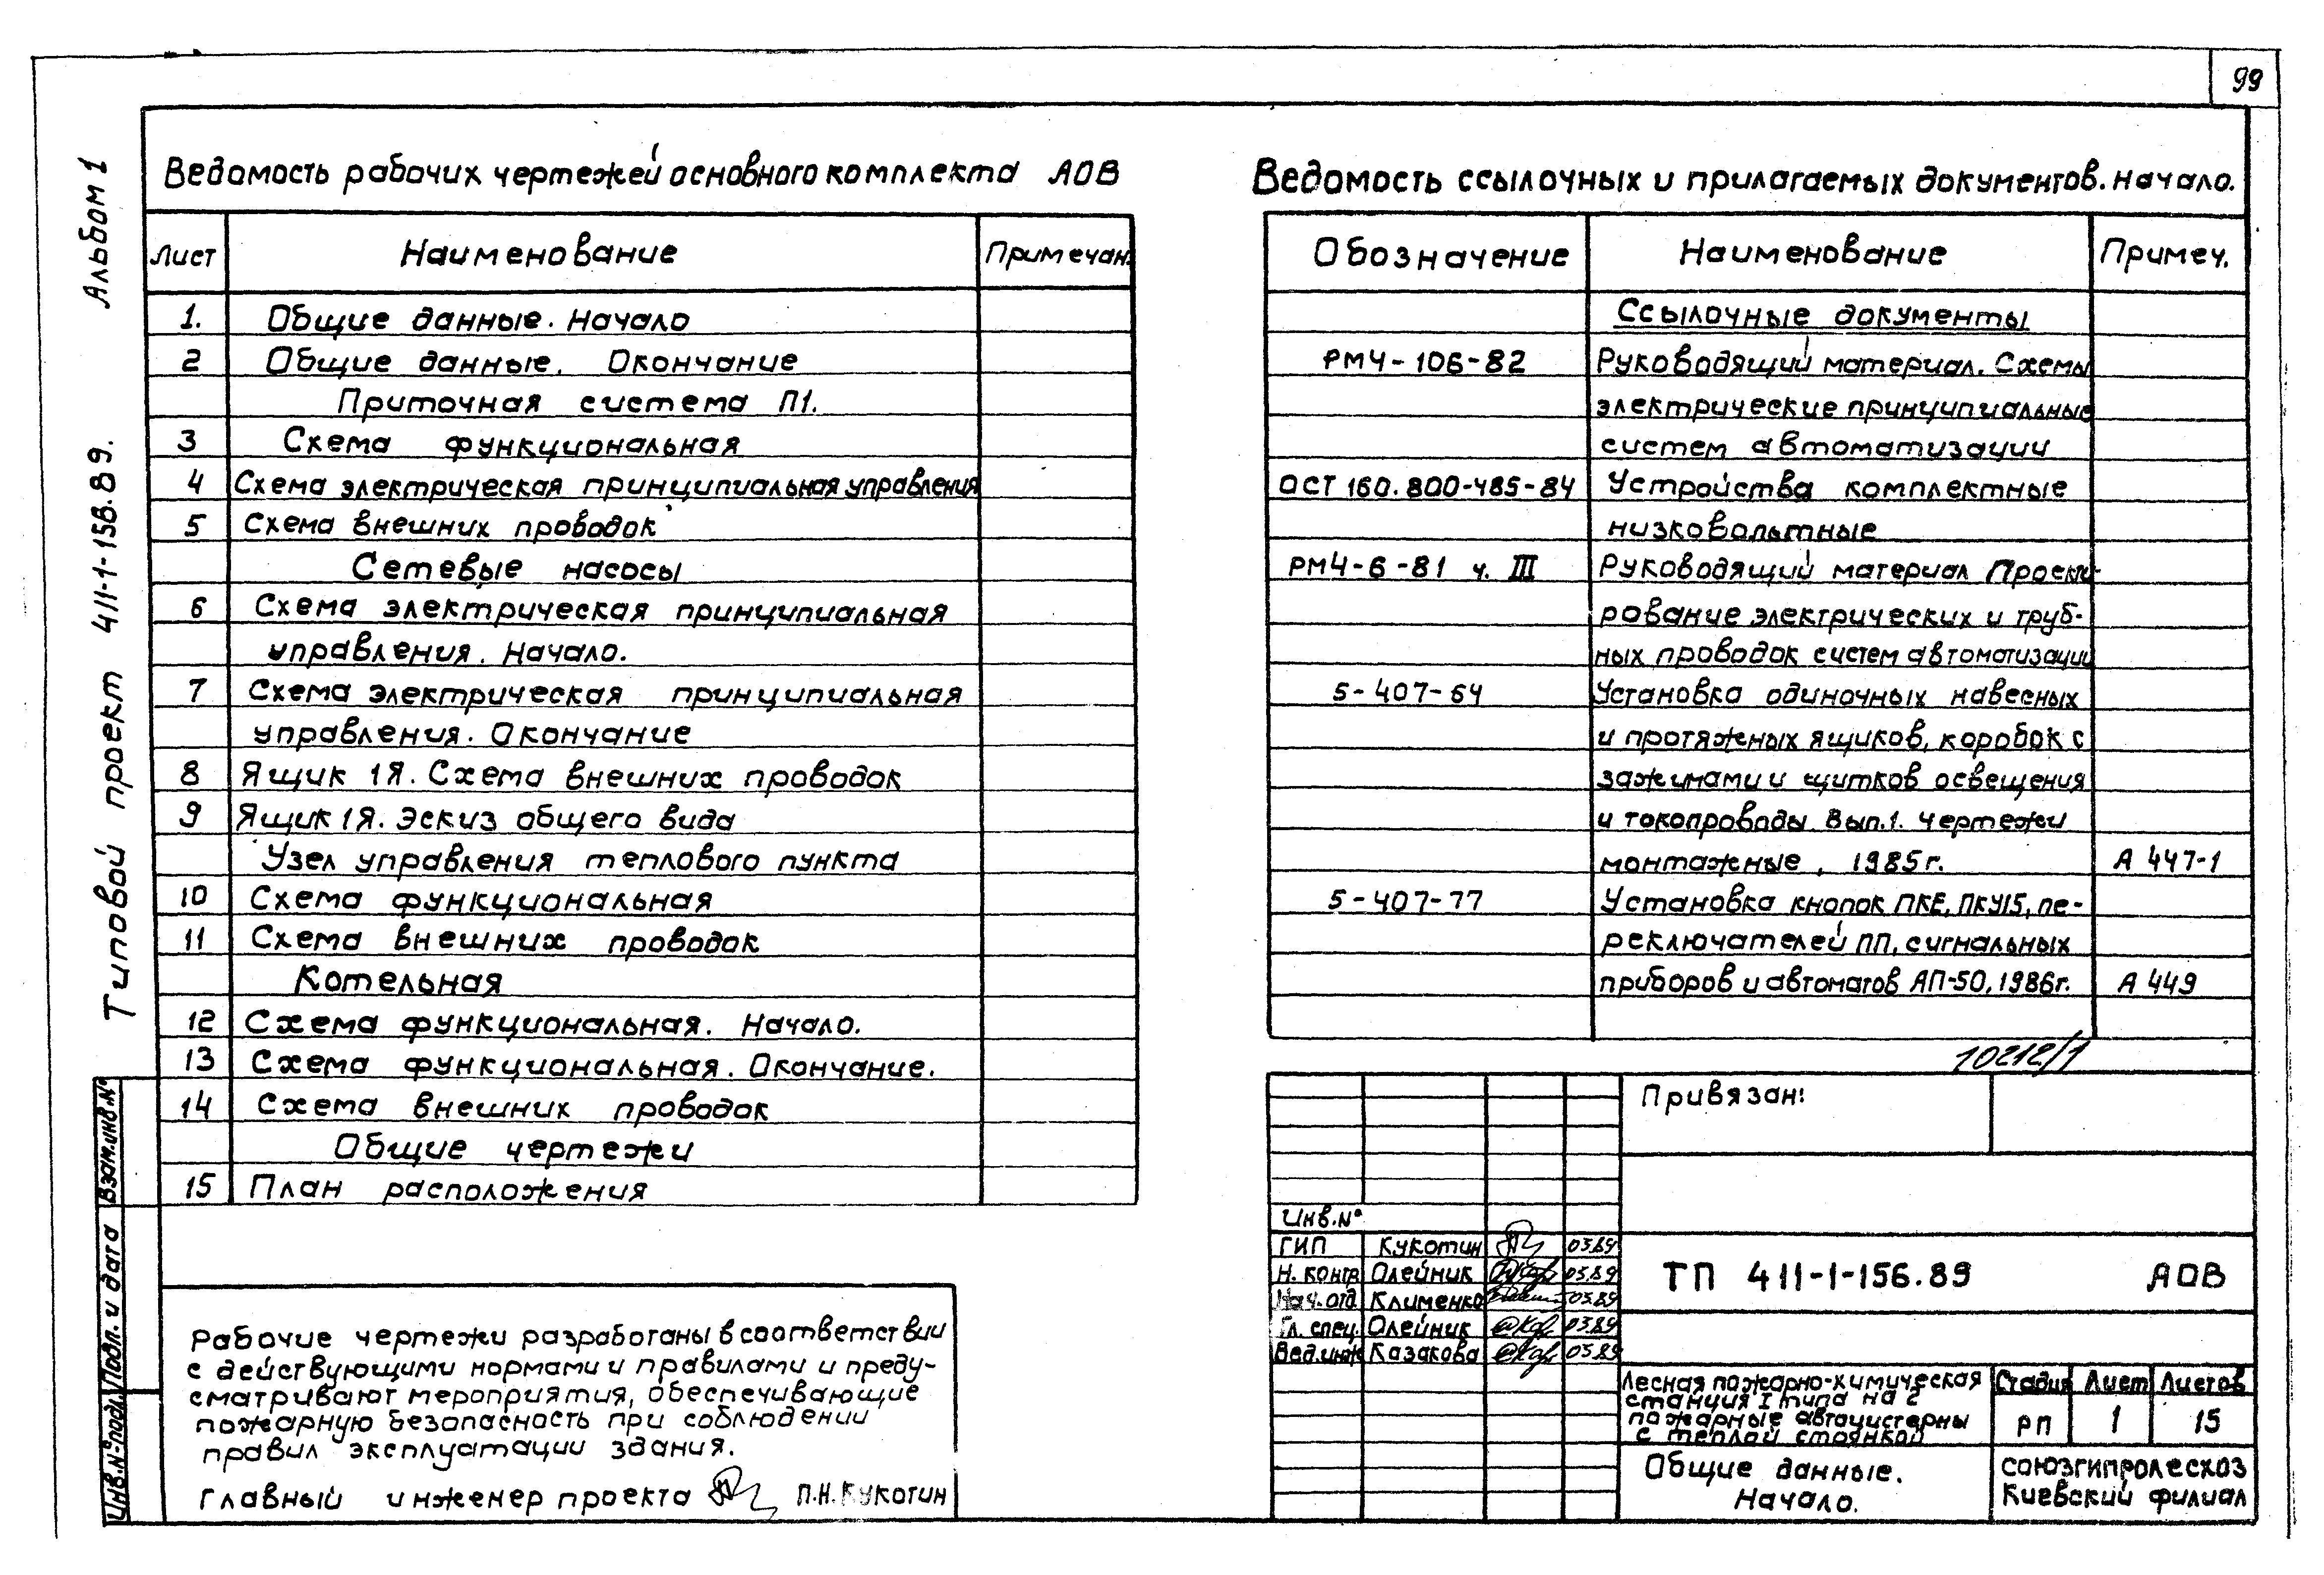 99
Альбом 1
Типовой проект 411-1-158.89.
Ведомость рабочих чертежей основного комплекта АОВ
Лист Наименование Примечан.
1. Общие данные. Начало
2 Общие данные. Окончание
Приточная система П1.
3 Схема функциональная
4 Схема электрическая принципиальная управления
5 Схема внешних проводок
Сетевые насосы
6 Схема электрическая принципиальная
управления. Начало.
7 Схема электрическая принципиальная
управления. Окончание
8 Ящик 1Я. Схема внешних проводок
9 Ящик 1Я. Эскиз общего вида
Узел управления теплового пункта
10 Схема функциональная
11 Схема внешних проводок
Котельная
12 Схема функциональная. Начало.
13 Схема функциональная. Окончание.
14 Схема внешних проводок
Общие чертежи
15 План расположения
Рабочие чертежи разработаны в соответствии
с действующими нормами и правилами и преду-
сматривают мероприятия, обеспечивающие
пожарную безопасность при соблюдении
правил эксплуатации здания.
Главный инженер проекта П.Н. Кукотин
Взам.инв.№
Подп. и дата
Инв.№ подл.
Ведомость ссылочных и прилагаемых документов. Начало.
Обозначение Наименование Примеч.
Ссылочные документы
РМ4-106-82 Руководящий материал. Схемы
электрические принципиальные
систем автоматизации
ОСТ 160.800-485-84 Устройства комплектные
низковольтные
РМ4-6-81 ч. III Руководящий материал Проекти-
рование электрических и труб-
ных проводок систем автоматизации
5-407-64 Установка одиночных навесных
и протяжных ящиков, коробок с
зажимами и щитков освещения
и токопроводы. Вып.1. Чертежи
монтажные, 1985г. А 447-1
5-407-77 Установка кнопок ПКЕ, ПКУ15, пе-
реключателей ПП, сигнальных
приборов и автоматов АП-50, 1986г. А 449
10212/1
Привязан:
Инв.№
ГИП Кукотин 03.89
Н. контр Олейник 03.89
Нач.отд Клименко 03.89
Гл. спец. Олейник 03.89
Вед.инж Казакова 03.89
ТП 411-1-156.89 АОВ
Лесная пожарно-химическая
станция I типа на 2
пожарные автоцистерны
с теплой стоянкой
Стадия Лист Листов
РП 1 15
Общие данные.
Начало.
Союзгипролесхоз
Киевский филиал